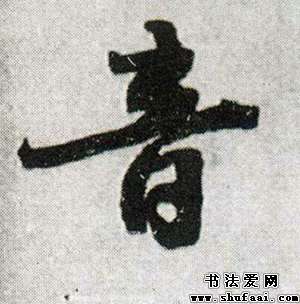 音
书法爱网
www.shufaai.com